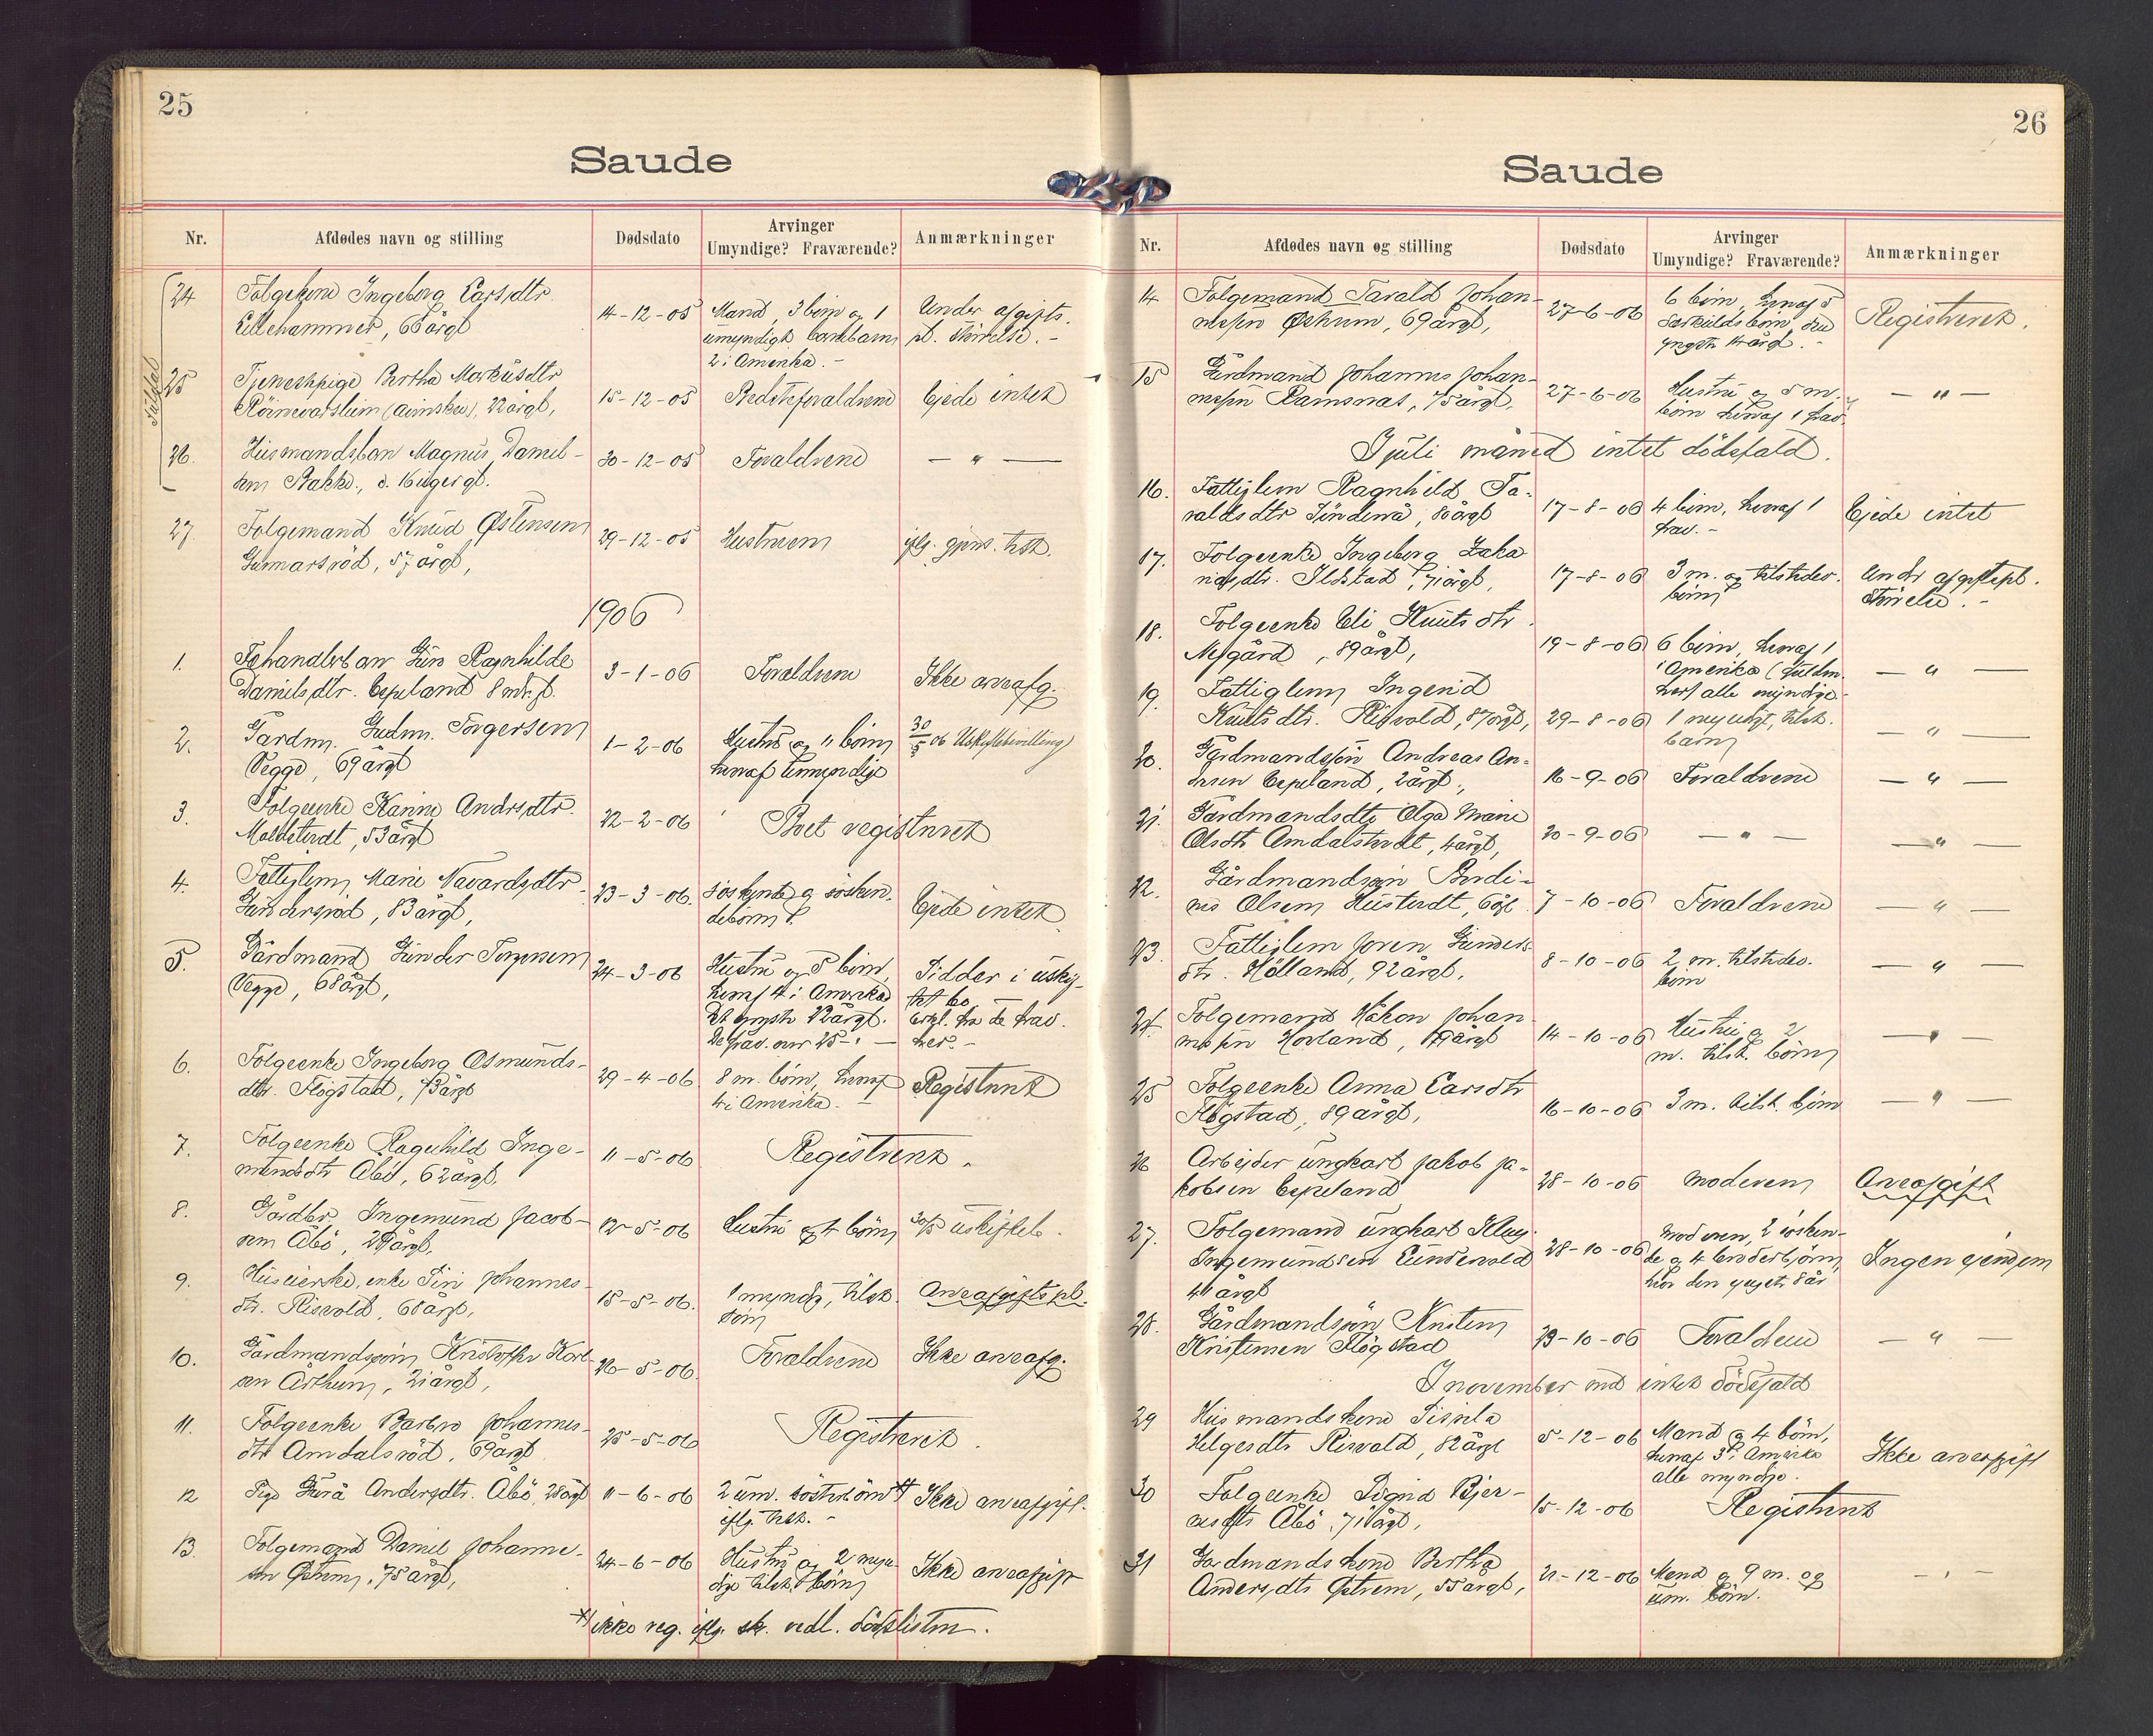 25
Saude
Nr.
Afdødes navn og stilling
Dødsdato
Arvinger
Umyndige? Fraværende?
Anmærkninger
24
Folgekone Ingeborg Larsdtr.
Lillehammer, 66 årgl
14-12-05
Mand, 3 börn og 1
umyndigt barnebarn
2 i Amerika. -
Under afgifts-
pl. störrelse. -
25
Tjenestepige Bertha Markusdtr
22 årgl,
15-12-05
Bedsteforældrene
Ejede intet
26.
Husmandsbarn Magnus Daniel-
sen Bakke., 16
30-12-05
Forældrene
— " —
27
Folgemand Knud Østensen
Gunnarsröd, 57 årgl,
29-12-05
Hustruen
iflg. gjens. test.
1906
1.
Daniels dtr. Espeland 8
3-1-06
Forældrene
Ikke arveafg.
2.
Gårdm. Gudm. Torgersen
Vegge, 69 årgl
1-2-06
Hustru og 11 börn
hvoraf umyndige
30/5 06 Uskiftebevilling
3.
Folgeenke Karine Andrsdtr.
53 årgl
22-2-06
Boet registreret
4.
Fattiglem Marie Navardsdtr.
83 årgl,
23-3-06.
söskende og sösken-
debörn
Ejede intet
5.
Gårdmand Gunder Torgersen
Vegge, 68 årgl,
24-3-06
Hustru og 5 börn
hvoraf 4 i Amerika
Det yngste 22 årgl.
De frav. over 25 - " —
Sidder i uskif-
tet bo
Erkl. fra de frav.
her. -
6.
Folgeenke Ingeborg Osmunds-
dtr. Flögstad, 73 årgl
29-4-06.
8 m. börn, hvoraf
4 i Amerika. -
Registreret
7.
Folgeenke Ragnhild Inge-
mundsdtr Åbö, 62 årgl,
11-5-06
Registreret.
8.
Gårdbr. Ingemund Jacob-
sen Åbö, årgl,
12-5-06
Hustru og 4 börn
30/5 uskifteb.
9.
Huseierske, enke Siri Johannes-
dtr. Risvold, 68 årgl,
15-5-06.
1 myndg, tilst.
sön
Arveafgiftspl.
10.
Gårdmandssön Kristoffer Karl-
sen Århum, 21 årgl,
26-5-06.
Forældrene
Ikke arveafg.
11.
Folgeenke Barbro Johannes-
dtr Amdalsröd, 69 årgl
25-5-06
Registreret.
12
Pige Gurå Andersdtr. Åbö, 28 årgl
11-6-06
2 um. sösterbörn *)
iflg. test. -
Ikke arveafgift.
13.
Folgemand Daniel Johanne-
sen Östrem, 75 årgl,
24-6-06
Hustru og 2 myn-
dige tilst. börn
Ikke arveafgift
*) ikke reg. iflg. sk. vedl. dödslisten.
26
Saude
Nr.
Afdødes navn og stilling
Dødsdato
Arvinger
Umyndige? Fraværende?
Anmærkninger
14
Folgemand Tarald Johan-
nesen Östrem, 69 årgl,
27-6-06
6 börn, hvoraf 5
særkuldsbörn, den
yngste 14 årgl. -
Registreret.
15
Gårdmand Johannes Johan-
nesen Ramsnæs, 75 årgl,
27-6-06
Hustru og 5 m.
börn hvoraf 1 frav.
— " —
I juli måned intet dödsfald.
16.
Fattiglem Ragnhild Ta-
raldsdtr Söndenå, 80 årgl
17-8-06
4 börn, hvoraf 1
frav. -
Ejede intet
17.
Folgeenke Ingeborg Zaka-
riasdtr. Ilstad, 71 årgl,
17-8-06
3 m. og tilstedev.
börn
Under afgiftspl.
störrelse. -
18.
Folgeenke Eli Knuts dtr.
Nesgård, 89 årgl,
19-8-06
6 börn, hvoraf 1
i Amerika
alle myndige. -
— " —
19.
Fattiglem Ingerid
Knuts dtr. Risvold, 87 årgl,
29-8-06
1 myndigt, tilst.
barn
— " —
20.
Gårdmandssön Andreas An-
dersen Espeland, 2 årgl.,
16-9-06
Forældrene
— " —
21.
Gårdmandsdtr Olga Marie
Olsdtr Amdalstveit, 4 årgl,
20-9-06
— " —
— " —
22.
Gårdmandssön Berdi-
nes Olsen Hustveit, 6 årgl
7-10-06
Forældrene
— " —
23.
Fattiglem Joren Gunders
dtr. Hölland, 92 årgl.
8-10-06
2 m. tilstedev.
börn
— " —
24.
Folgemand Håkon Johan-
nesen Hovland, årgl
14-10-06
Hustru og 2
m. tilst. börn
— " —
25
Folgeenke Anna Larsdtr
Flögstad, 89 årgl,
16-10-06
3 m. tilst. börn
— " —
26
Arbeider ungkarl Jakob Ja-
kobsen Espeland
28-10-06
moderen
Arveafgift
27.
Folgemand ungkarl
Ingemundsen Lundevold
41 årgl
28-10-06
moderen, 2 sösken-
de og 4 broderbörn,
hvor den yngste 8 år
Ingen eiendom
28.
Gårdmandssön Kristen
Kristensen Flögstad
29-10-06
Forældrene
— " —
I november md intet dödsfald
29
Husmandskone Sissela
Helgesdtr Risvold, 82 årgl
5-12-06
Mand og 4 börn,
hvoraf 3 i Amerika
alle myndige.
Ikke arveafgift
30
Folgeenke Sigrid Bjer-
nesdtr Åbö, 71 årgl,
15-12-06
Registreret
31
Gårdmands kone Bertha
Andersdtr Östrem, 55 årgl,
21-12-06
Mand og 9 m. og
um. börn.
— " —